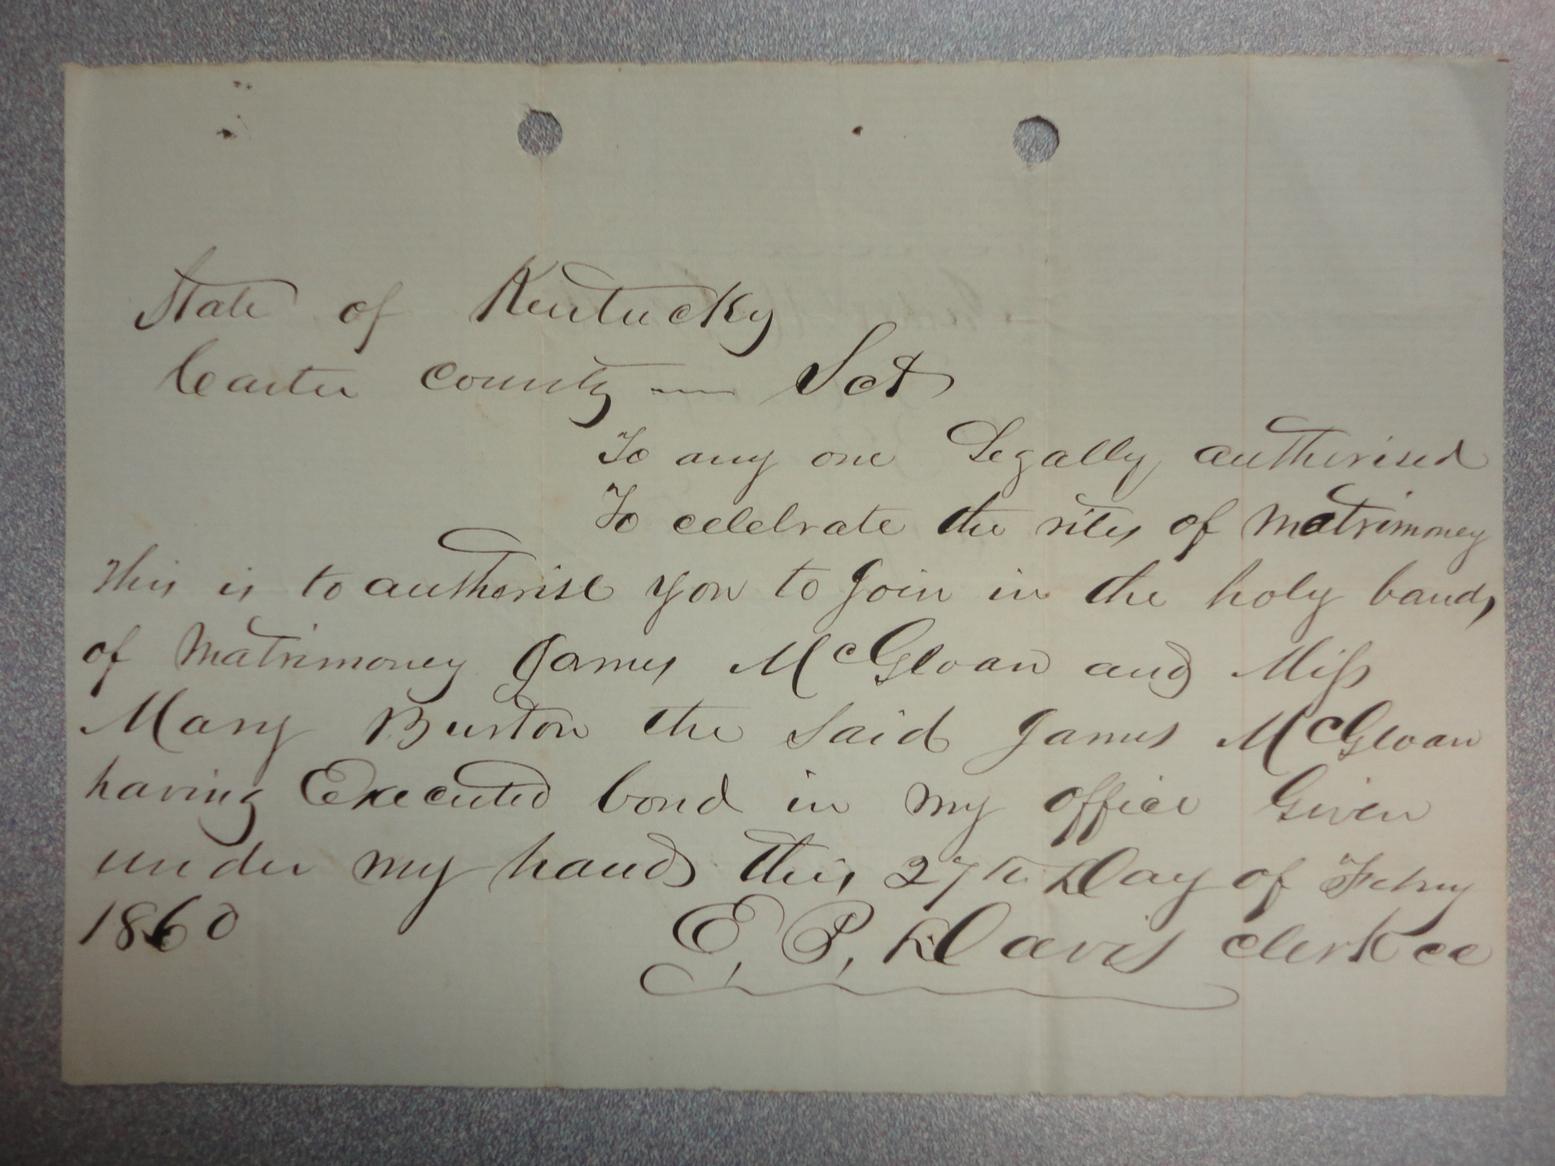 State of Kentucky
Carter County — Sct
To any one Legally authorised
To celebrate the rites of Matrimoney
This is to authorise you to Join in the holy bands
of Matrimoney James McGloan and Miss
Mary Burton the said James McGloan
having Executed bond in my office Given
under my hand this 27th Day of Febry
1860 E, P, Davis clerk cc